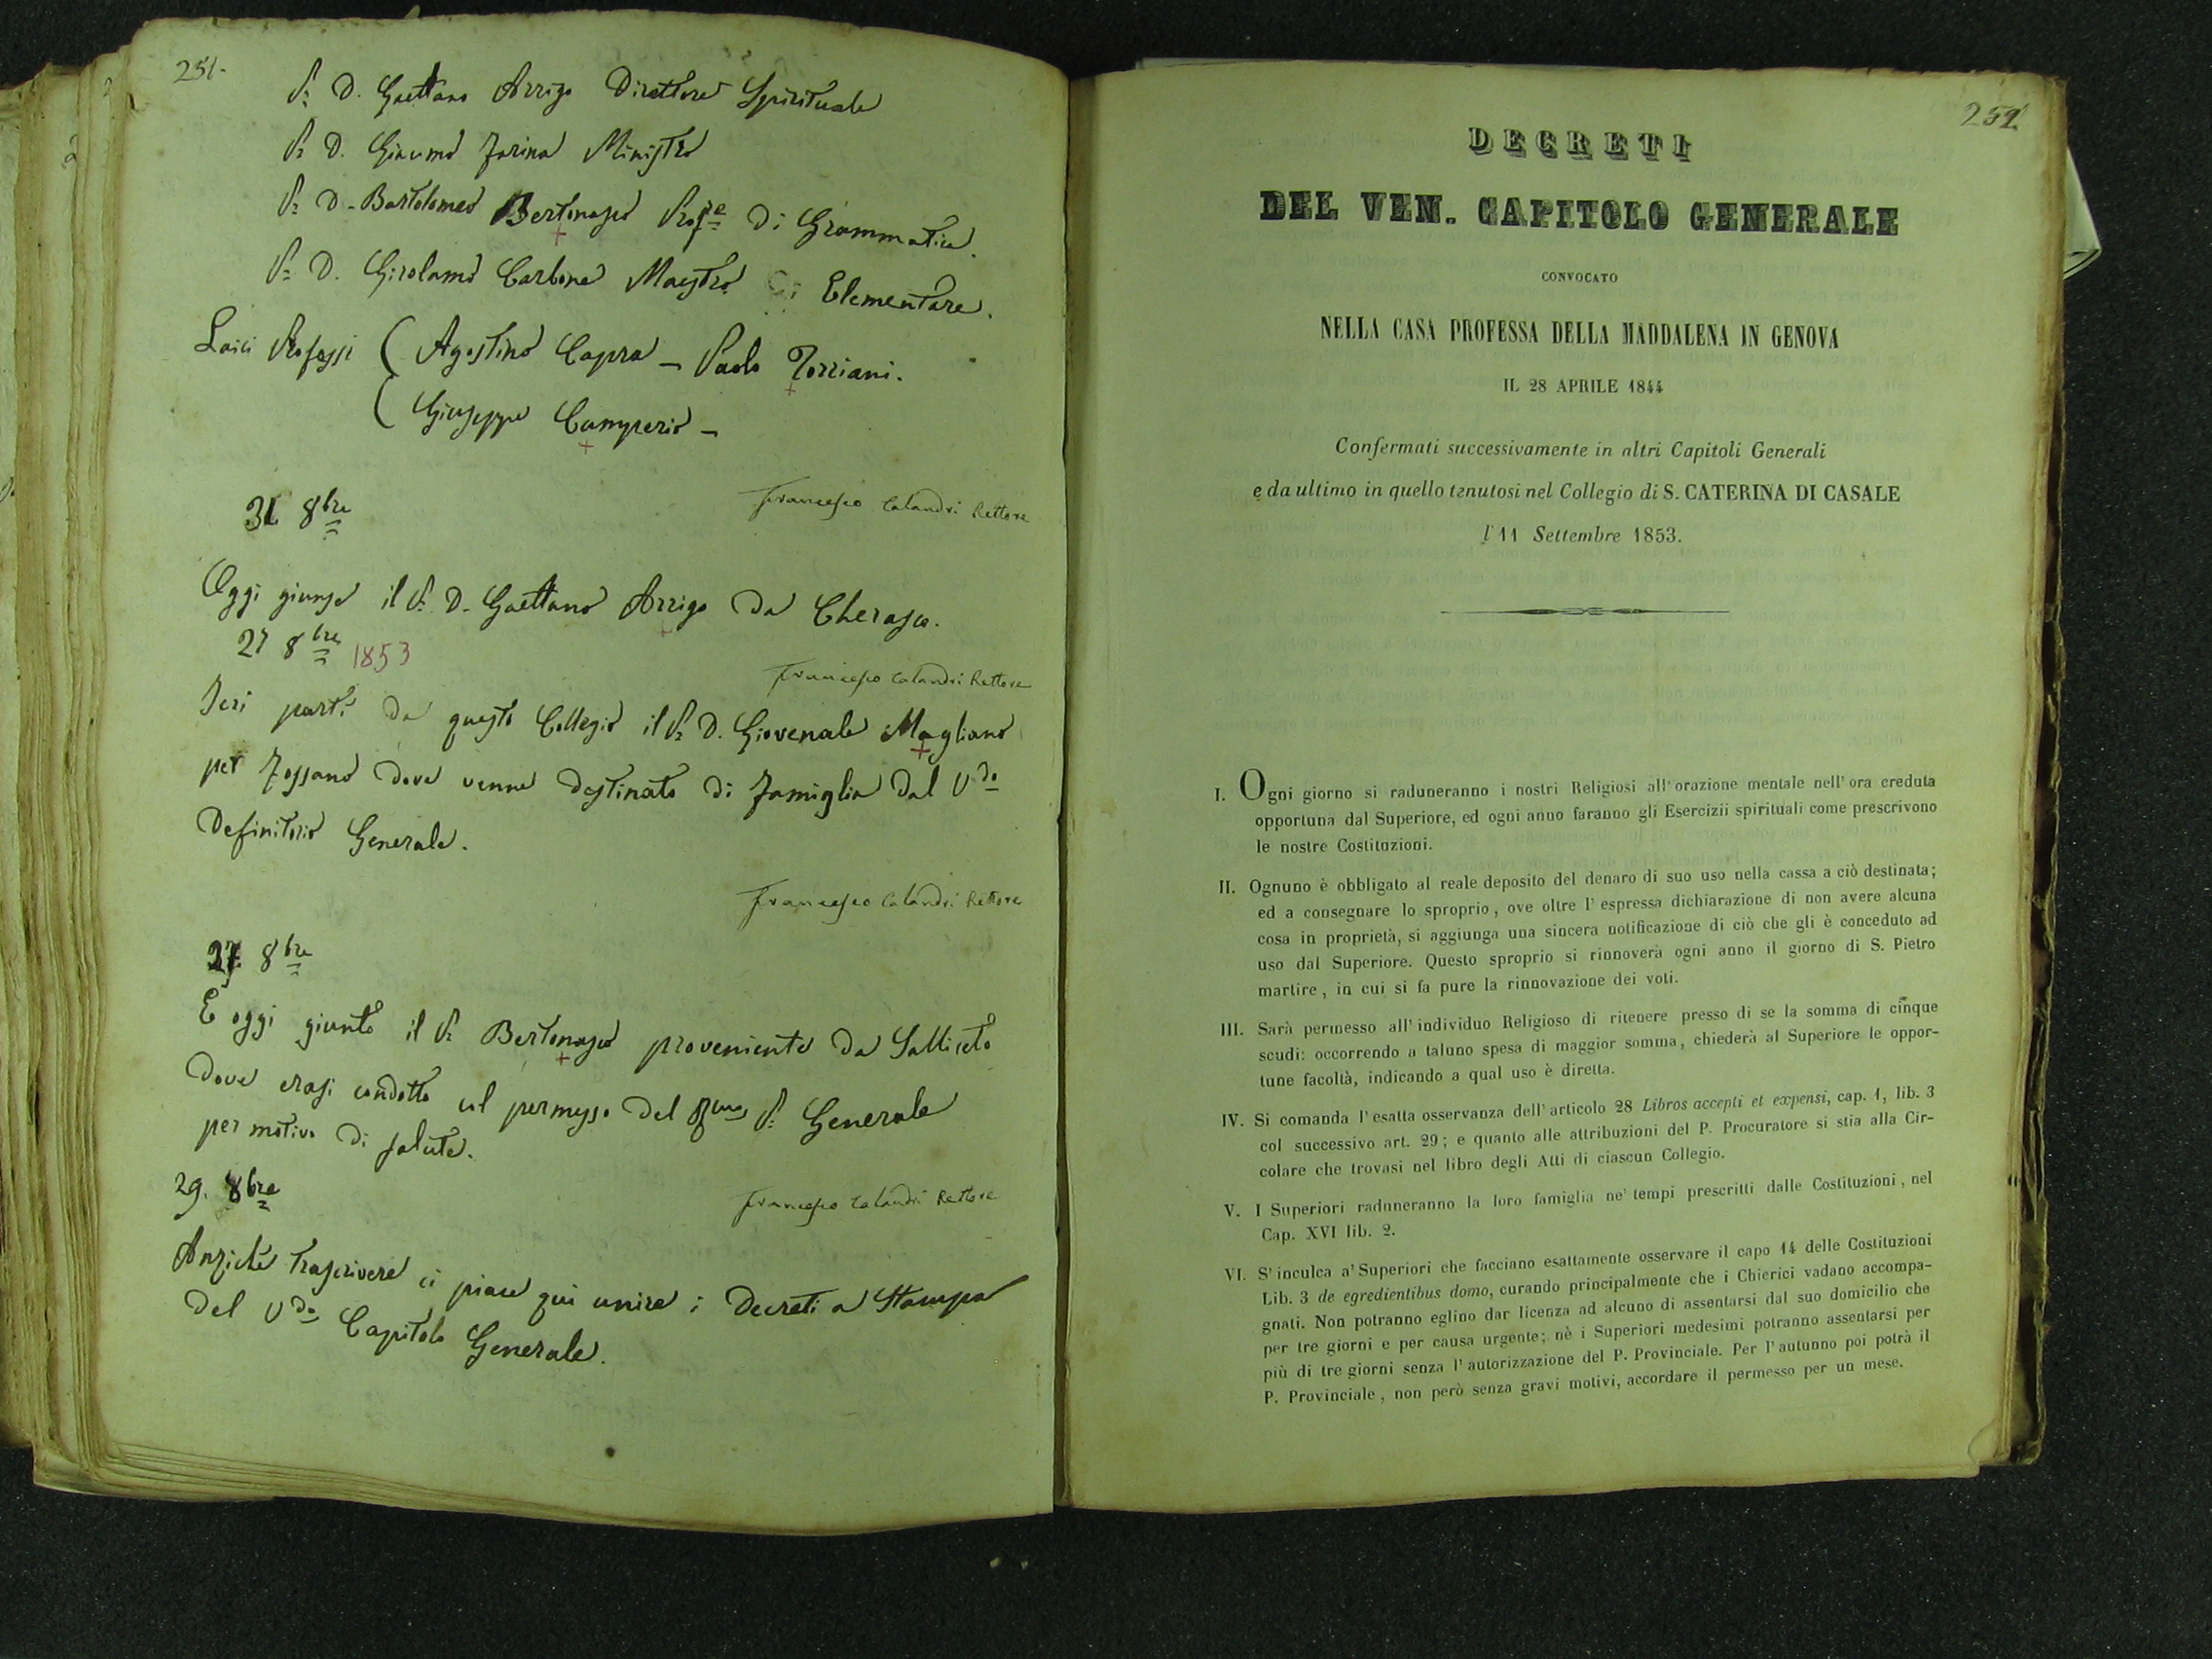 251.
P. D. Gaettano Arrigo Direttore Spirituale
P. D. Giacomo Farina Ministro
P. D. Bartolomeo Bertonasco Profre di Grammatica.
P. D. Girolamo Carbone Maestro Elementare.
Laici Professi ( Agostino Capra – Paolo Torriani.
( Giuseppe Camperio –
Francesco Calandri Rettore
31 8bre
Oggi giunse il P. D. Gaettano Arrigo da Cherasco.
Francesco Calandri Rettore
27 8bre 1853
Ieri partì da questo Collegio il P. D. Giovenale Magliano
per Fossano dove venne destinato di famiglia dal Vdo
Definitorio Generale.
Francesco Calandri Rettore
27 8bre
E oggi giunto il P. Bertonasco proveniente da Salliceto
dove erasi condotto col permesso del P. Generale
per motivo di salute.
Francesco Calandri Rettore
29. 8bre
Anzichè trascrivere ci piace qui unire i Decreti a Stampa
del Vdo Capitolo Generale.
252
DECRETI
DEL VEN. CAPITOLO GENERALE
CONVOCATO
NELLA CASA PROFESSA DELLA MADDALENA IN GENOVA
IL 28 APRILE 1844
Confermati successivamente in altri Capitoli Generali
e da ultimo in quello tenutosi nel Collegio di S. CATERINA DI CASALE
l'11 Settembre 1853.
I. Ogni giorno si raduneranno i nostri Religiosi all'orazione mentale nell'ora creduta
opportuna dal Superiore, ed ogni anno faranno gli Esercizii spirituali come prescrivono
le nostre Costituzioni.
II. Ognuno è obbligato al reale deposito del denaro di suo uso nella cassa a ciò destinata;
ed a consegnare lo sproprio, ove oltre l'espressa dichiarazione di non avere alcuna
cosa in proprietà, si aggiunga una sincera notificazione di ciò che gli è conceduto ad
uso dal Superiore. Questo sproprio si rinnoverà ogni anno il giorno di S. Pietro
martire, in cui si fa pure la rinnovazione dei voti.
III. Sarà permesso all'individuo Religioso di ritenere presso di se la somma di cinque
scudi: occorrendo a taluno spesa di maggior somma, chiederà al Superiore le oppor-
tune facoltà, indicando a qual uso è diretta.
IV. Si comanda l'esatta osservanza dell'articolo 28 Libros accepti et expensi, cap. 1, lib. 3
col successivo art. 29; e quanto alle attribuzioni del P. Procuratore si stia alla Cir-
colare che trovasi nel libro degli Atti di ciascun Collegio.
V. I Superiori raduneranno la loro famiglia ne' tempi prescritti dalle Costituzioni, nel
Cap. XVI lib. 2.
VI. S'inculca a' Superiori che facciano esattamente osservare il capo 14 delle Costituzioni
Lib. 3 de egredientibus domo, curando principalmente che i Chierici vadano accompa-
gnati. Non potranno eglino dar licenza ad alcuno di assentarsi dal suo domicilio che
per tre giorni e per causa urgente; nè i Superiori medesimi potranno assentarsi per
più di tre giorni senza l'autorizzazione del P. Provinciale. Per l'autunno poi potrà il
P. Provinciale, non però senza gravi motivi, accordare il permesso per un mese.